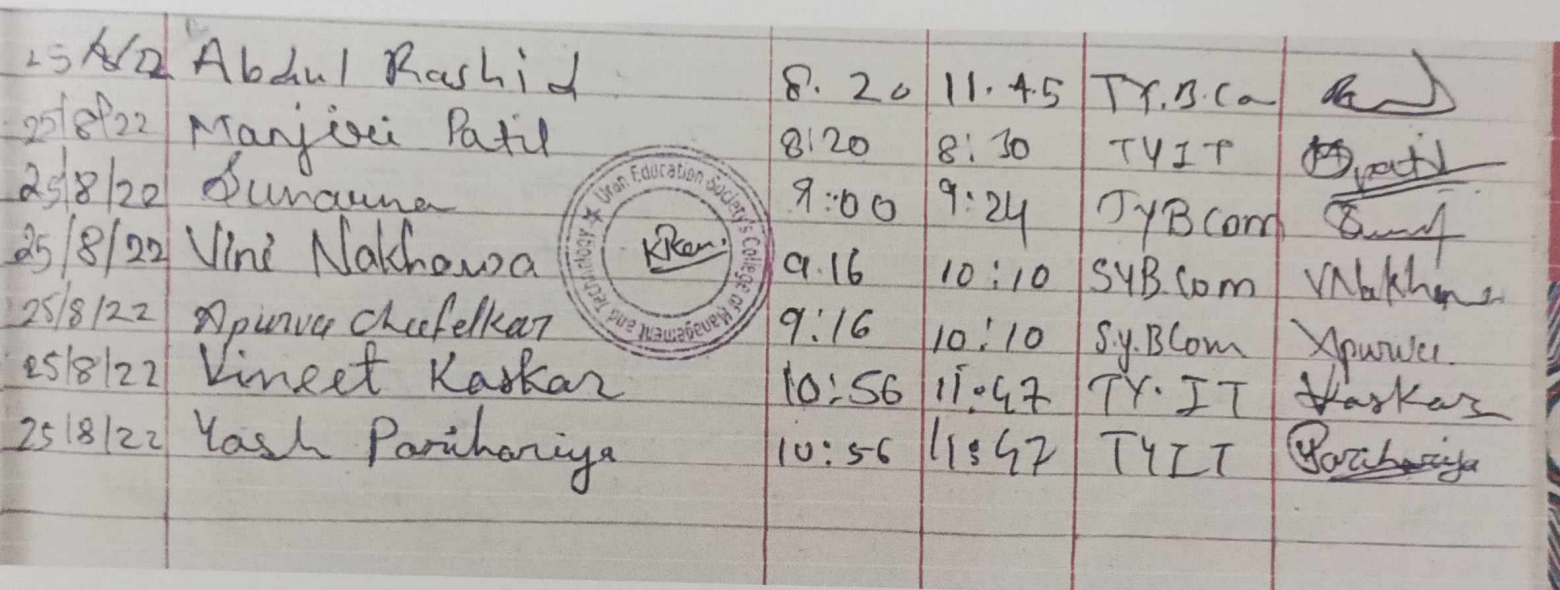 25/8/22 Abdul Rashid 8.20 11.45 TY.B.Co
25/8/22 Manjiri Patil 8:20 8:30 TYIT Mpatil
25/8/22 Sunayna 9:00 9:24 TYBCom
25/8/22 Vini Nakhawa 9.16 10:10 SYB.Com VNakhawa
25/8/22 Apurva Chafelkar 9:16 10:10 S.y.BCom Apurva
25/8/22 Vineet Kaskar 10:56 11:47 TY.IT Kaskar
25/8/22 Yash Parihariya 10:56 11:47 TYIT Parihariya
Uran Education Society's College of Management and Technology